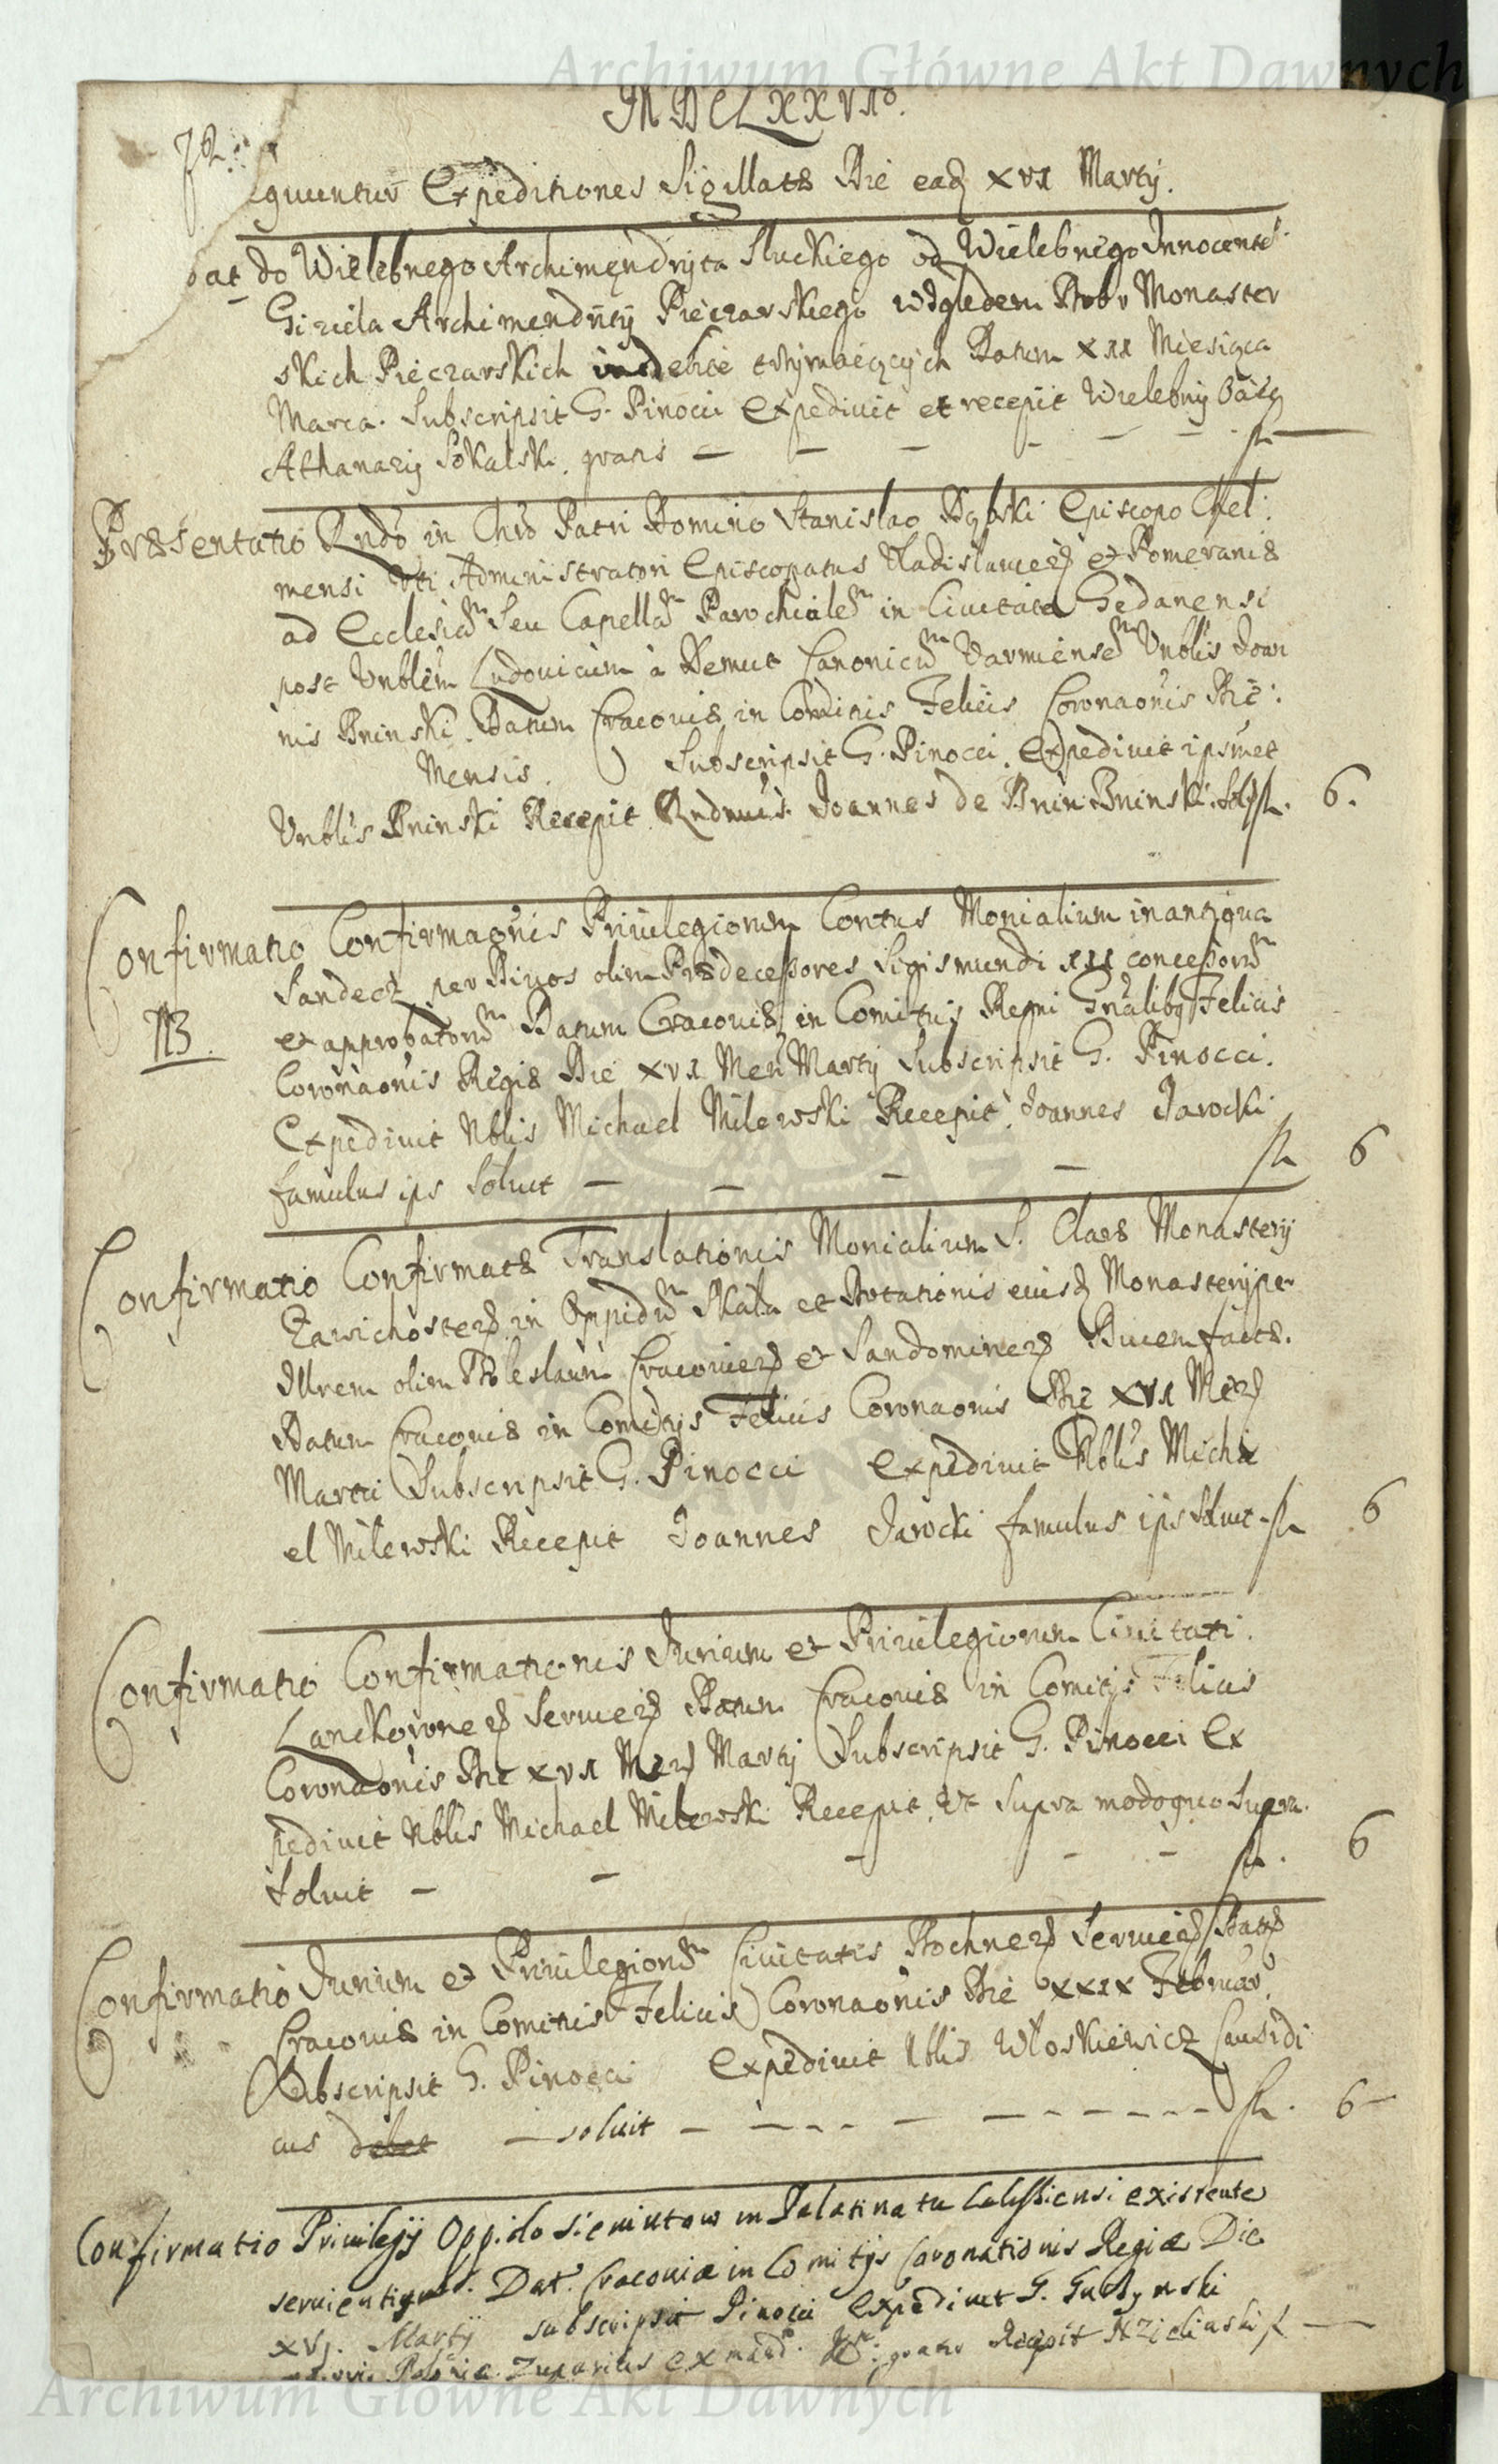 Archiwum Główne Akt Dawnych
MDCLXXVIto.
72.
equuntur Expeditiones Sigillatæ Die eaḍ XVI Martij.
at do Wielebnego Archimęndryta Sluckiego od Wielebnego Innocente°
Giziela Archimendrity Pieczarskiego względem Dobr Monaster
skich Pieczarskich indebite trzymaiących Datum XII Miesiąca
Marca. Subscripsit G. Pinocci Expediuit et recepit Wielebny Oćiec
Athanazy Sokalski gratis — — — — — — fl —
Præsentatio Rndo in Chro Patri Domino Stanislao Dąbski Episcopo Chel:
mensi uti Administratori Episcopatus Vladislauień et Pomeraniæ
ad Ecclesiam Seu Capellam Parochialem in Ciuitate Gedanensi
post Vnblem Ludouicum à Demut Canonicum Varmiensem Vnblis Joan
nis Bninski. Datum Cracouiæ in Comitiis Felicis Coronaonis Die:
Mensis. Subscripsit G. Pinocci. Expediuit ipsmet
Vnblis Bninski Recepit Rndmus Joannes de Bnin Bninski. Sol. fl. 6.
Confirmatio Confirmaonis Priuilegiorum Contus Monialium in antiqua
Sandecz per Diuos olim Prædecessores Sigismundi III concessorum
NB.
et approbatorum Datum Cracouiæ in Comitijs Regni Gnalibg Felicis
Coronaonis Regiæ Die XVI Men Martij Subscripsit G. Pinocci.
Expediuit Nblis Michael Milewski Recepit Joannes Jarocki
famulus ips Soluit — — — — fl 6
Confirmatio Confirmatæ Translationis Monialium S. Claræ Monasterij
Zawichosteń in Oppidum Skala et Dotationis eiusḍ Monasterij per
Illrem olim Boleslaum Cracouień et Sandomirień Ducem factæ.
Datum Cracouiæ in Comitijs Felicis Coronaonis Die XVI Meń
Martii Subscripsit G. Pinocci Expediuit Nblis Micha
el Milewski Recepit Joannes Jarocki famulus ips Soluit fl 6
Confirmatio Confirmationis Jurium et Priuilegiorum Ciuitati.
Lanckoroneń Seruień Datum Cracouiæ in Comitijs Felicis
Coronaonis Die XVI Meń Martij Subscripsit G. Pinocci Ex
pediuit Nblis Michael Milewski Recepit Vt Supra modoque Supra.
Soluit — — — — — fl. 6
Confirmatio Jurium et Priuilegiorum Ciuitatis Bochneń Seruień Datæ
Cracouiæ in Comitiis Felicis Coronaonis Die XXIX Februar.
Subscripsit G. Pinocci Expediuit Nblis Włoskiewicz Causidi
cus debet — soluit — — — — — — — — fl. 6 —
Confirmatio Priuilegij Oppido Sieniutow in Palatinatu existente
seruientique. Dat. Cracouiæ in Comitijs Coronationis Regiæ Die
XVJ. Martij subscripsit Pinocci Expediuit G.
ex mand. gratis Recepit fl —
Archiwum Główne Akt Dawnych